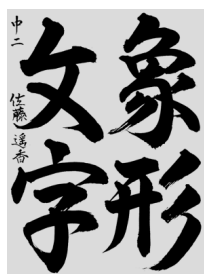 象形
文字
中二 佐藤 遥香